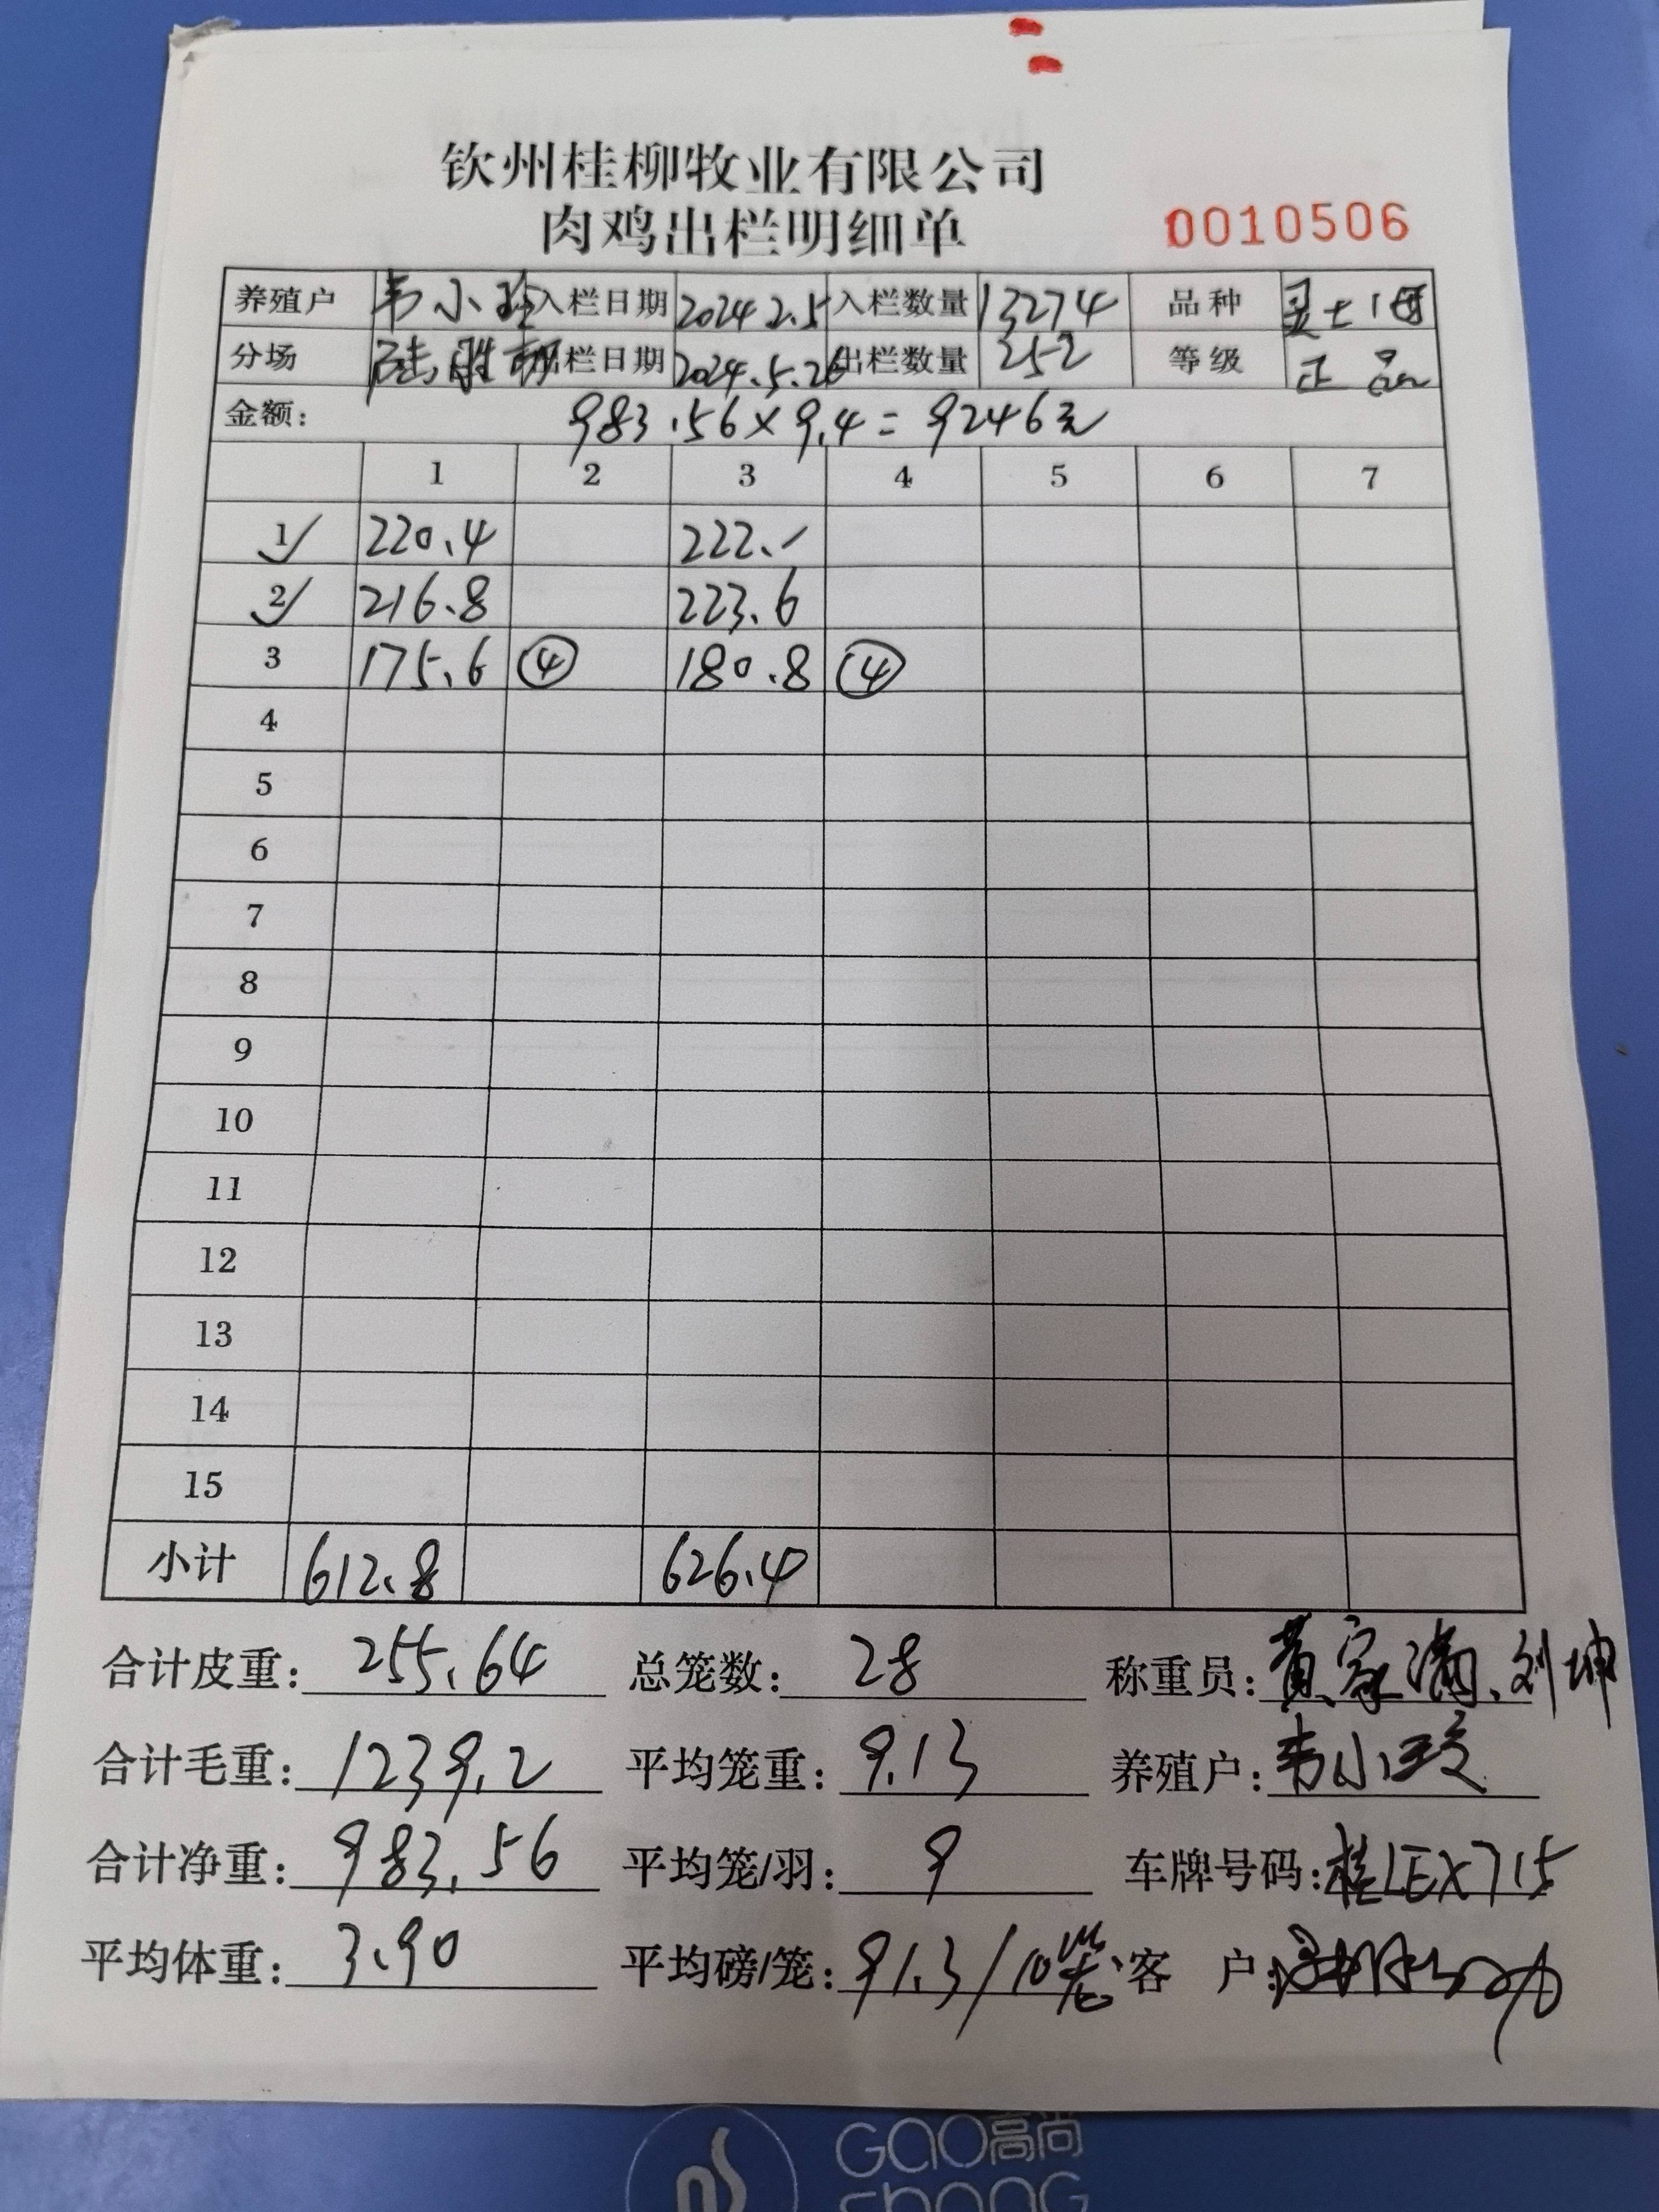 钦州桂柳牧业有限公司
肉鸡出栏明细单
0010506
养殖户 韦小玲 入栏日期 2024.2.5 入栏数量 13274 品种 灵土1
分场 陆胜朝 出栏日期 2024.5.26 出栏数量 252 等级 正品
金额: 983.56×9.4=9246元
1 2 3 4 5 6 7
1 220.4 222.-
2 216.8 223.6
3 175.6 ④ 180.8 ④
4
5
6
7
8
9
10
11
12
13
14
15
小计 612.8 626.4
合计皮重: 255.64 总笼数: 28 称重员: 黄家满、刘坤
合计毛重: 1239.2 平均笼重: 9.13 养殖户: 韦小玲
合计净重: 983.56 平均笼/羽: 9 车牌号码: 桂LEX715
平均体重: 3.90 平均磅/笼: 91.3/10笼 客 户:
GAO高尚